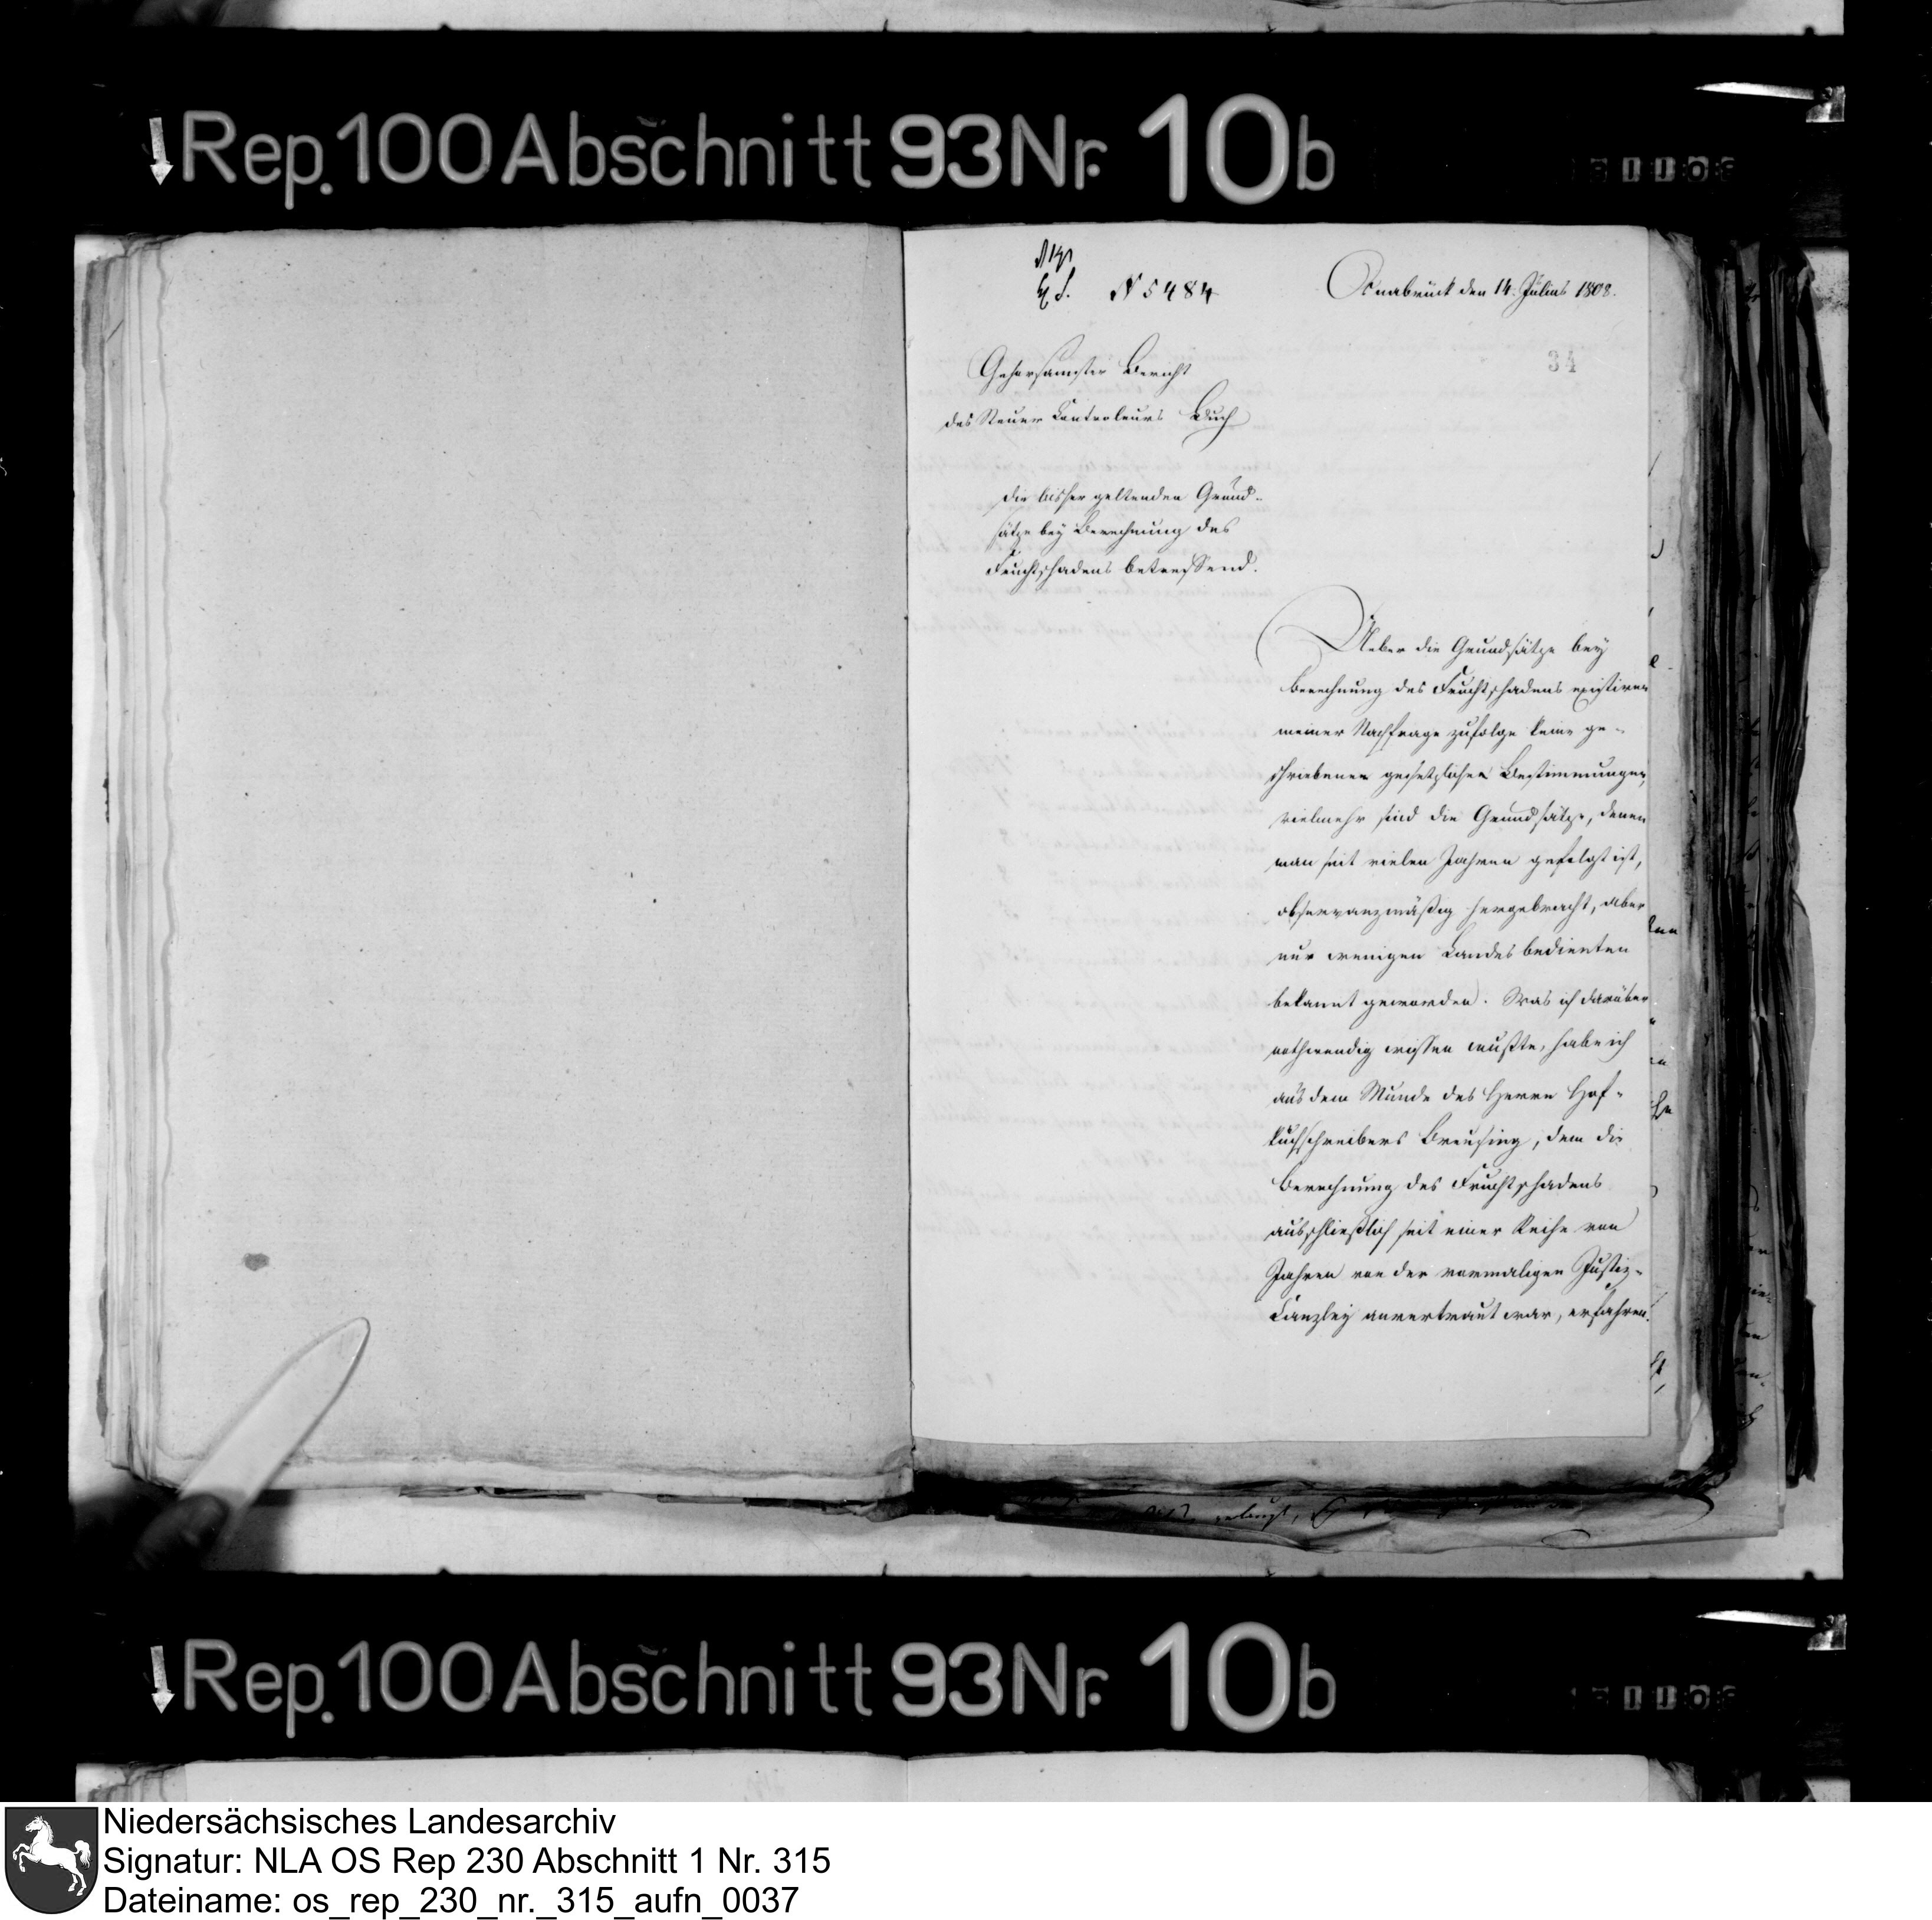 Rep. 100 Abschnitt 93 Nr. 10b
N 5484
Osnabrück den 14. Julius 1808.
34
Gehorsamster Bericht
des Steuer Controleurs Buch
die bisher geltenden Grund-
sätze bey Berechnung des
Fruchtschadens betreffend.
Ueber die Grundsätze bey
Berechnung des Fruchtschadens existiren
meiner Nachfrage zufolge keine ge-
schriebenen gesetzlichen Bestimmungen,
vielmehr sind die Grundsätze, denen
man seit vielen Jahren gefolgt ist,
observanzmäßig hergebracht, aber
nur wenigen Landes bedienten
bekannt geworden. Was ich darüber
nothwendig wissen mußte, habe ich
aus dem Munde des Herrn Hof-
schreibers Breusing, dem die
Berechnung des Fruchtschadens
ausschließlich seit einer Reihe von
Jahren von der vormaligen Justiz-
Canzley anvertraut war, erfahren.
Rep. 100 Abschnitt 93 Nr. 10b
Niedersächsisches Landesarchiv
Signatur: NLA OS Rep 230 Abschnitt 1 Nr. 315
Dateiname: os_rep_230_nr._315_aufn_0037